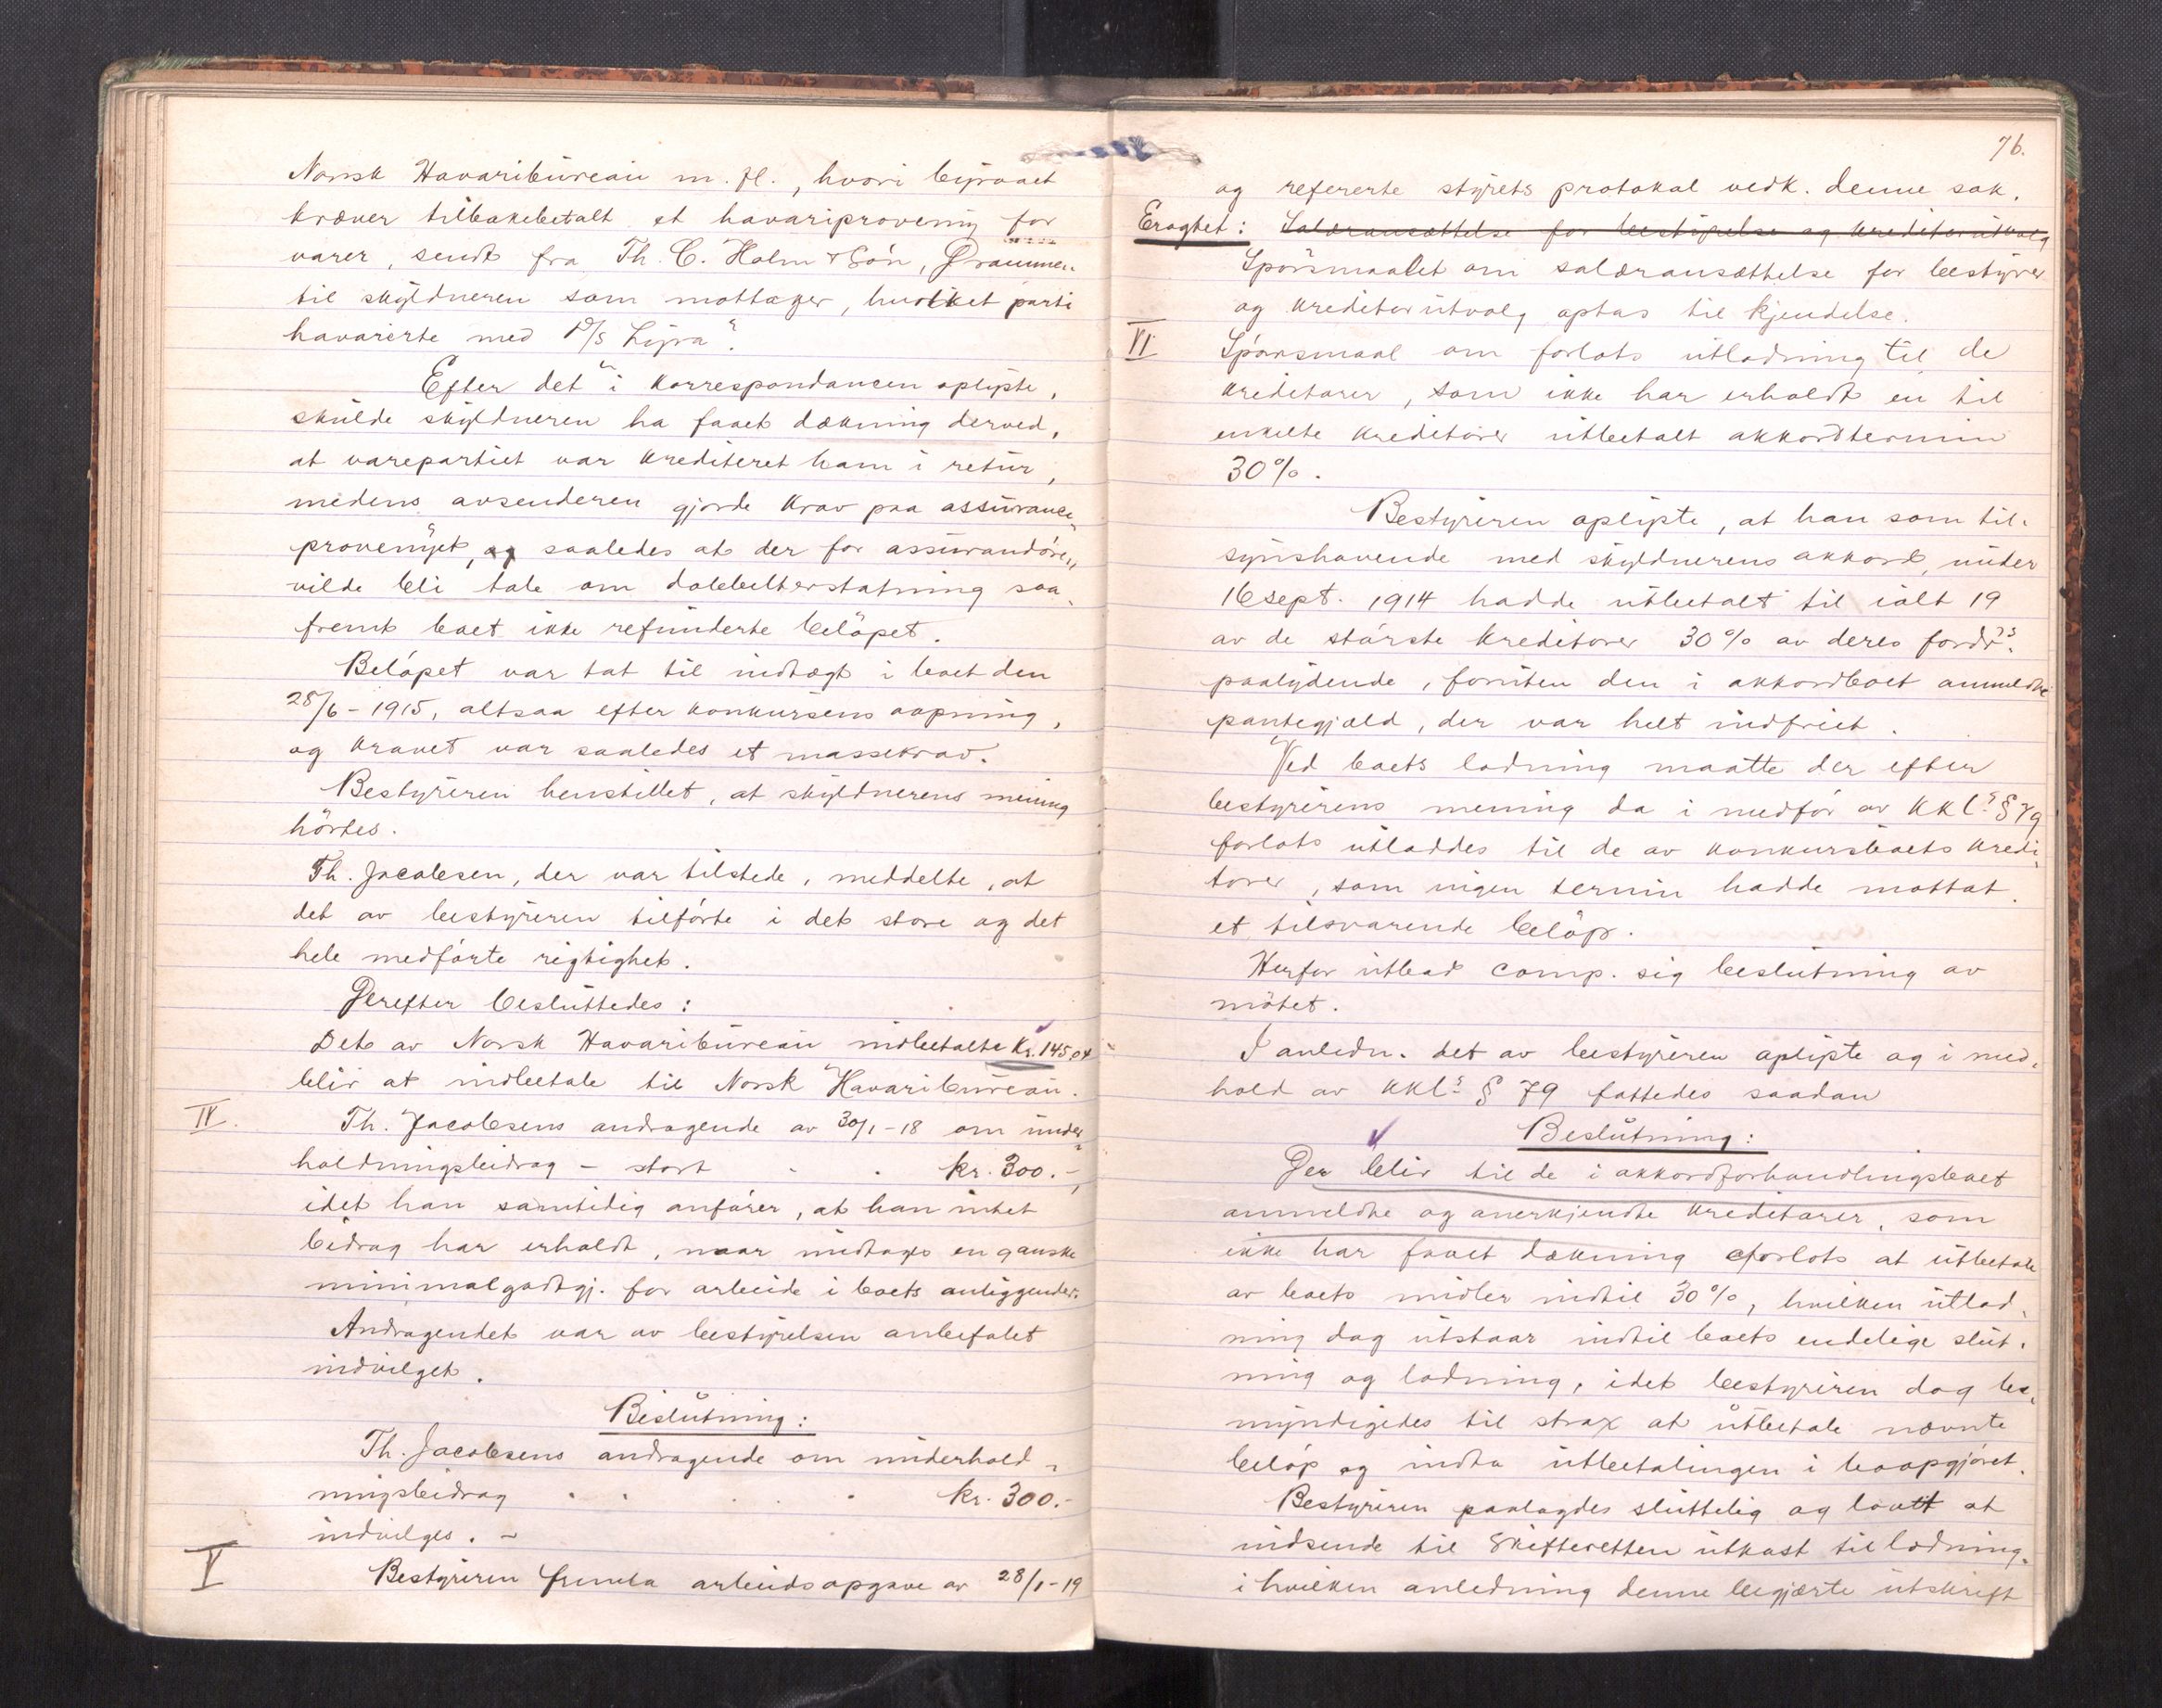 Norsk Havaribureau m. fl., hvori byraaet
kræver tilbakebetalt et havariprovenü for
varer, sendt fra Th. C. Holm & Sön, Drammen
til skyldneren som mottager, hvilket parti
havarerte med D/S "Lyra".
Efter det i korrespondancen oplyste,
skulde skyldneren ha faaet dækning derved,
at varepartiet var krediteret ham i retur,
medens avsenderen gjorde krav paa assurance-
provenyet, og saaledes at der for assurandören
vilde bli tale om dobbelterstatning saa-
fremt boet ikke refunderte belöpet.
Belöpet var tat til indtægt i boet den
28/6-1915, altsaa efter konkursens aapning,
og kravet var saaledes et massekrav.
Bestyreren henstillet, at skyldnerens mening
hörtes.
Th. Jacobsen, der var tilstede, meddelte, at
det av bestyreren tilförte i det store og det
hele medförte rigtighet.
Derefter besluttedes:
Det av Norsk Havaribureau indbetalte Kr. 145,04
blir at indbetale til Norsk Havaribureau.
IV. Th. Jacobsens andragende av 30/1-18 om under-
holdningsbidrag - stort kr. 300.-,
idet han samtidig anförer, at han intet
bidrag har erholdt, naar undtages en ganske
minimal godtgj. for arbeide i boets anliggender.
Andragendet var av bestyrelsen anbefalet
indvilget.
Beslutning:
Th. Jacobsens andragende om underhold-
ningsbidrag kr. 300.-
indvilges. -
V Bestyreren fremla arbeidsopgave av 28/1-19
76.
og refererte styrets protokol vedk. denne sak.
Eragtet: Salæransættelse for bestyrelse og kreditorutvalg
Spörsmaalet om salæransættelse for bestyrer
og kreditorutvalg optas til kjendelse.
VI Spörsmaal om forlots utlodning til de
kreditorer, som ikke har erholdt en til
enkelte kreditorer utbetalt akkordtermin
30%.
Bestyreren oplyste, at han som til-
synshavende med skyldnerens akkord, under
16 sept. 1914 hadde utbetalt til ialt 19
av de störste kreditorer 30% av deres fordrs.
paalydende, foruten den i akkordboet anmeldte
pantegjæld, der var helt indfriet.
Ved boets lodning maatte der efter
bestyrerens mening da i medför av KKl.s § 79
forlots utloddes til de av konkursboets kredi-
torer, som ingen termin hadde mottat
et tilsvarende belöp.
Herfor utbad comp. sig beslutning av
mötet.
I anledn. det av bestyreren oplyste og i med-
hold av KKl.s § 79 fattedes saadan
Beslutning:
Der blir til de i akkordforhandlingsboet
anmeldte og anerkjendte kreditorer, som
ikke har faaet dækning forlots at utbetale
av boets midler indtil 30%, hvilken utlod-
ning dog utstaar indtil boets endelige slut-
ning og lodning, idet bestyreren dog be-
myndigedes til strax at utbetale nævnte
belöp og indta utbetalingen i boopgjöret.
Bestyreren paalagdes sluttelig og lovet at
indsende til Skifteretten utkast til lodning,
i hvilken anledning denne begjærte utskrift